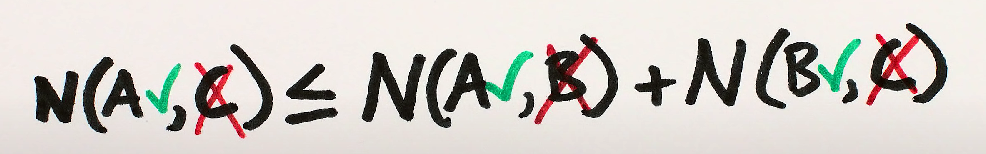 N(A✓,C̸) ≤ N(A✓,B̸) + N(B✓,C̸)